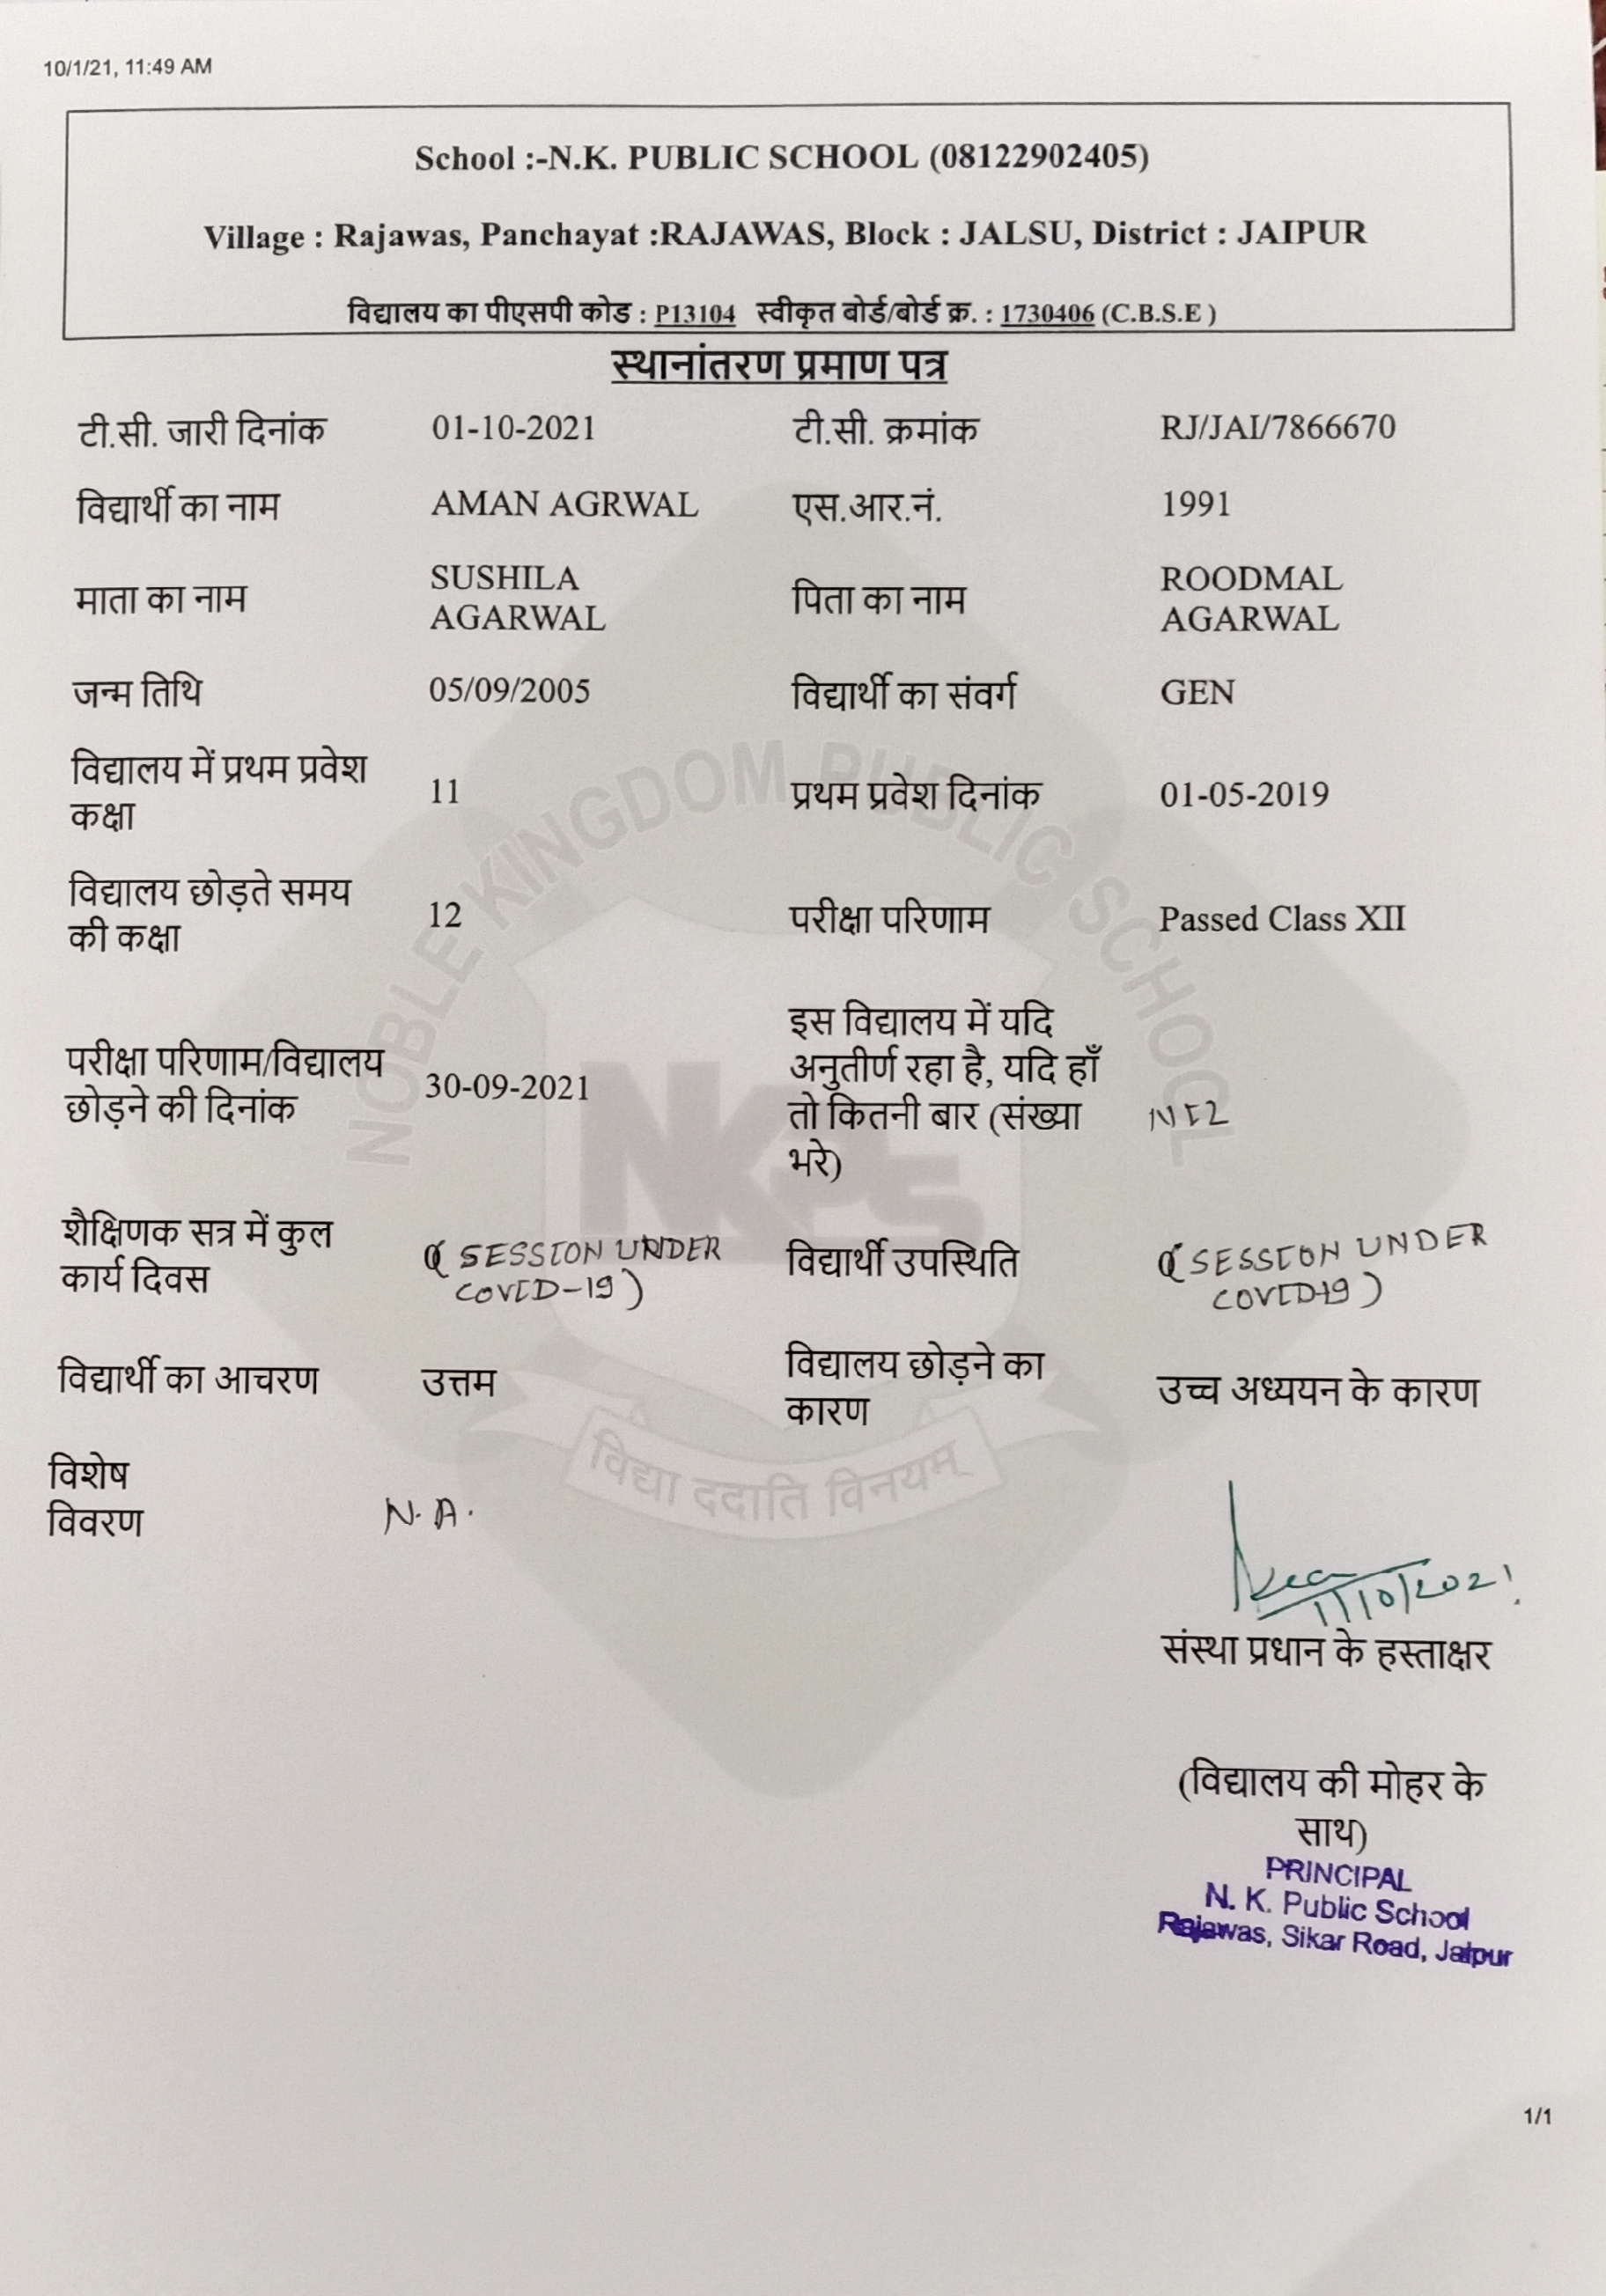 10/1/21, 11:49 AM
School :-N.K. PUBLIC SCHOOL (08122902405)
Village : Rajawas, Panchayat :RAJAWAS, Block : JALSU, District : JAIPUR
विद्यालय का पीएसपी कोड : P13104 स्वीकृत बोर्ड/बोर्ड क्र. : 1730406 (C.B.S.E )
स्थानांतरण प्रमाण पत्र
टी.सी. जारी दिनांक 01-10-2021 टी.सी. क्रमांक RJ/JAI/7866670
विद्यार्थी का नाम AMAN AGRWAL एस.आर.नं. 1991
माता का नाम SUSHILA AGARWAL पिता का नाम ROODMAL AGARWAL
जन्म तिथि 05/09/2005 विद्यार्थी का संवर्ग GEN
विद्यालय में प्रथम प्रवेश
कक्षा
11 प्रथम प्रवेश दिनांक 01-05-2019
विद्यालय छोड़ते समय
की कक्षा
12 परीक्षा परिणाम Passed Class XII
परीक्षा परिणाम/विद्यालय
छोड़ने की दिनांक
30-09-2021
इस विद्यालय में यदि
अनुतीर्ण रहा है, यदि हाँ
तो कितनी बार (संख्या
भरे)
NIL
शैक्षिणक सत्र में कुल
कार्य दिवस
(SESSION UNDER
COVID-19)
विद्यार्थी उपस्थिति
(SESSION UNDER
COVID-19)
विद्यार्थी का आचरण उत्तम
विद्यालय छोड़ने का
कारण
उच्च अध्ययन के कारण
विशेष
विवरण
N.A.
1/10/2021
संस्था प्रधान के हस्ताक्षर
(विद्यालय की मोहर के
साथ)
PRINCIPAL
N. K. Public School
Rajawas, Sikar Road, Jaipur
NOBLE KINGDOM PUBLIC SCHOOL
NKPS
विद्या ददाति विनयम्
1/1